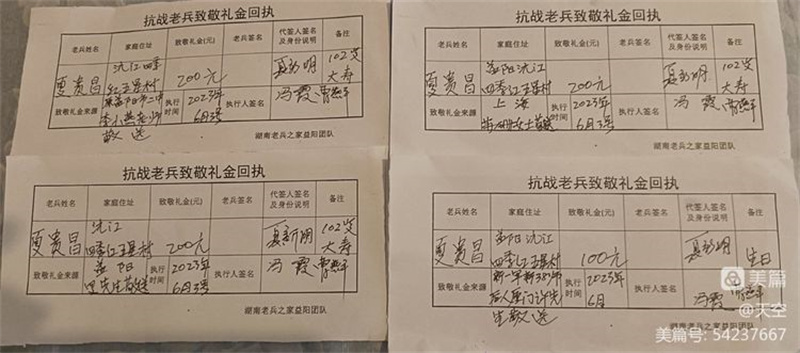 抗战老兵致敬礼金回执
老兵姓名 家庭住址 致敬礼金(元) 老兵签名 代签人签名及身份说明 备注
夏贵昌 沅江四季红五星村 200元 夏新明 102岁大寿
致敬礼金来源 益阳市二中 李小燕老师敬送 执行时间 2023年6月3号 执行人签名 冯霞
湖南老兵之家益阳团队
抗战老兵致敬礼金回执
老兵姓名 家庭住址 致敬礼金(元) 老兵签名 代签人签名及身份说明 备注
夏贵昌 益阳沅江四季红五星村 200元 夏新明 102岁大寿
致敬礼金来源 上海 女士敬送 执行时间 2023年6月3号 执行人签名 冯霞
湖南老兵之家益阳团队
抗战老兵致敬礼金回执
老兵姓名 家庭住址 致敬礼金(元) 老兵签名 代签人签名及身份说明 备注
夏贵昌 沅江四季红五星村 200元 夏新明 102岁大寿
致敬礼金来源 益阳 先生敬送 执行时间 2023年6月3号 执行人签名 冯霞
湖南老兵之家益阳团队
抗战老兵致敬礼金回执
老兵姓名 家庭住址 致敬礼金(元) 老兵签名 代签人签名及身份说明 备注
夏贵昌 益阳沅江四季红五星村 100元 夏新明 生日
致敬礼金来源 新一军新38师后人厦门许先生敬送 执行时间 2023年6月 执行人签名 冯霞
湖南老兵之家益阳团队
美篇
@天空
美篇号: 54237667